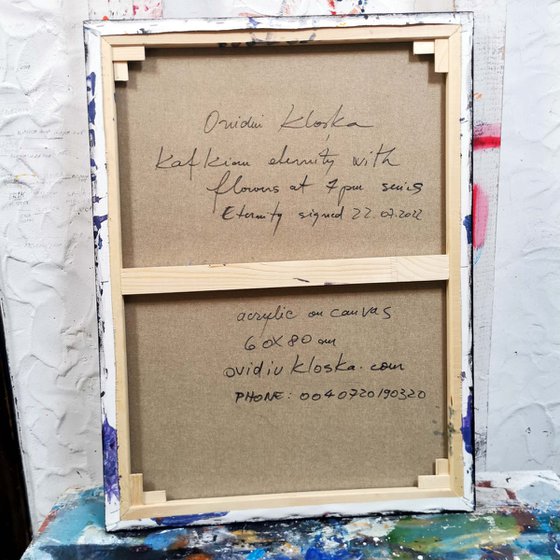 Ovidiu Kloska
Kafkian eternity with
flowers at 7pm series
Eternity signed 22.07.2022
acrylic on canvas
60x80 cm
ovidiu kloska.com
PHONE: 0040720190320